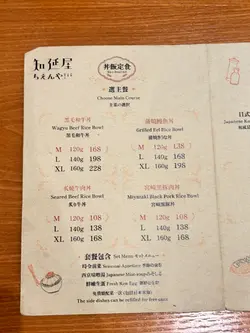 知延屋
ちえんや
丼飯定食
選主餐
Choose Main Course
主菜の選択
黒毛和牛丼
Wagyu Beef Rice Bowl
黒毛和牛丼
M 120g 168
L 140g 198
XL 160g 228
蒲燒鰻魚丼
Grilled Eel Rice Bowl
M 120g 138
L 140g 168
XL 160g 198
炙燒牛肉丼
Seared Beef Rice Bowl
炙り牛丼
M 120g 108
L 140g 138
XL 160g 168
宮崎黑豚肉丼
Miyazaki Black Pork Rice Bowl
宮崎黒豚丼
M 120g 108
L 140g 138
XL 160g 168
套餐包含 Set Menu
時令前菜 Seasonal Appetizer
西京味噌湯 Japanese Miso soup
鮮雞生蛋 Fresh Raw Egg
The side dishes can be refilled for free once
日式